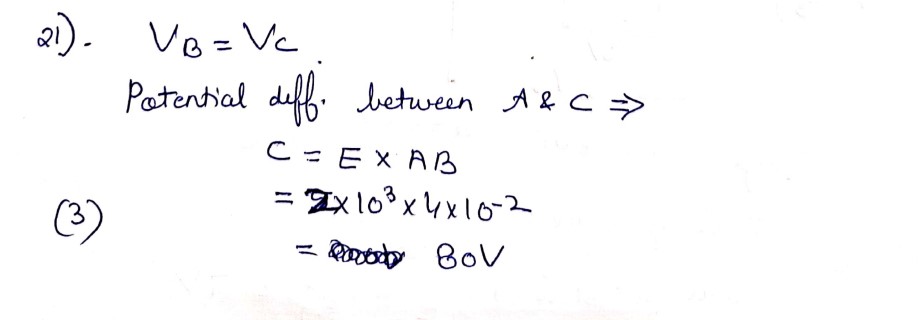 21). V_B = V_C
Potential diff. between A & C ⇒
C = E × AB
= 2×10³ × 4×10⁻²
(3)
= 80V